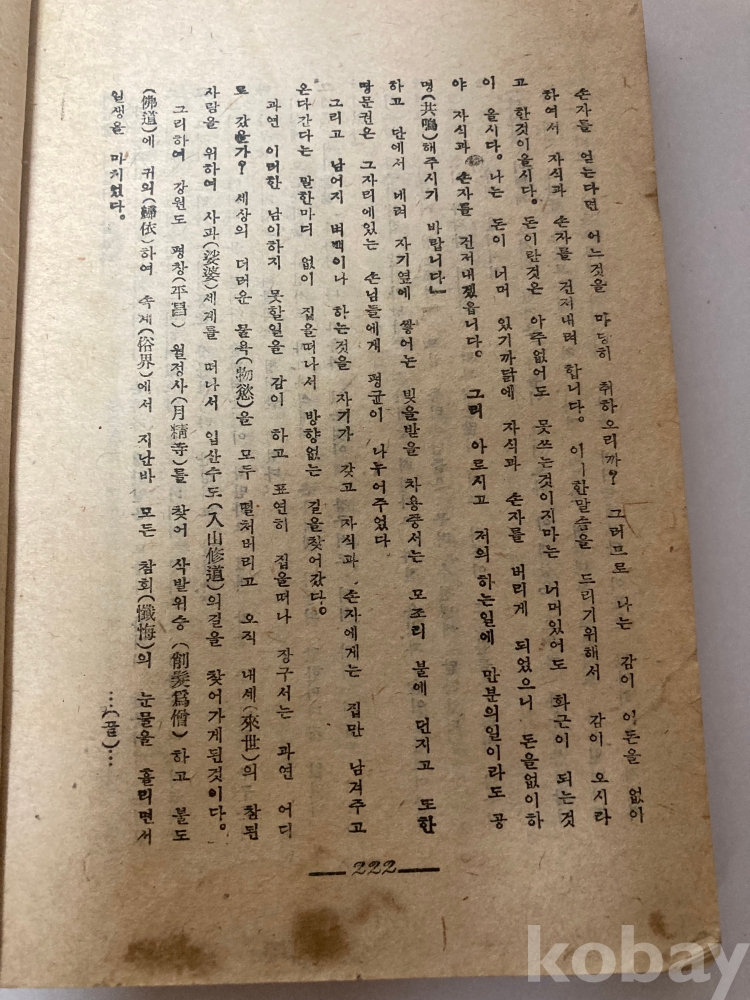 손자를 얻는다면 어느것을 마땅히 취하오리까? 그러므로 나는 감이 이돈을 없이
하여서 자식과 손자를 건저내려 합니다. 이ㅡ한말슴을 드리기위해서 감이 오시라
고 한것이올시다. 돈이란것은 아주없어도 못쓰는것이지마는 너머있어도 화근이 되는것
이 올시다. 나는 돈이 너머 있기까닭에 자식과 손자를 버리게 되었으니 돈을없이하
야 자식과 손자를 건저내겠읍니다. 그리 아르시고 저의 하는일에 만분의일이라도 공
명(共鳴)해주시기 바랍니다」
하고 단에서 내려 자기옆에 쌓어논 빚을받을 차용증서는 모조리 불에 던지고 또한
땅문권은 그자리에있는 손님들에게 평균이 나누어주었다
그리고 남어지 벼백이나 하는것을 자기가 갖고 자식과 손자에게는 집만 남겨주고
온다간다는 말한마디 없이 집을떠나서 방향없는 길을찾어갔다.
과연 이러한 남이하지 못할일을 감이 하고 표연히 집을떠나 장구서는 과연 어디
로 갔을가? 세상의 더러운 물욕(物慾)을 모두 떨처버리고 오직 내세(來世)의 참된
사람을 위하여 사파(娑婆)세계를 떠나서 입산수도(入山修道)의길을 찾어가게된것이다.
그리하여 강원도 평창(平昌) 월정사(月精寺)를 찾어 삭발위승(削髮爲僧)하고 불도
(佛道)에 귀의(歸依)하여 속계(俗界)에서 지난바 모든 참회(懺悔)의 눈물을 흘리면서
일생을 마치었다.
…(끝)…
222
kobay